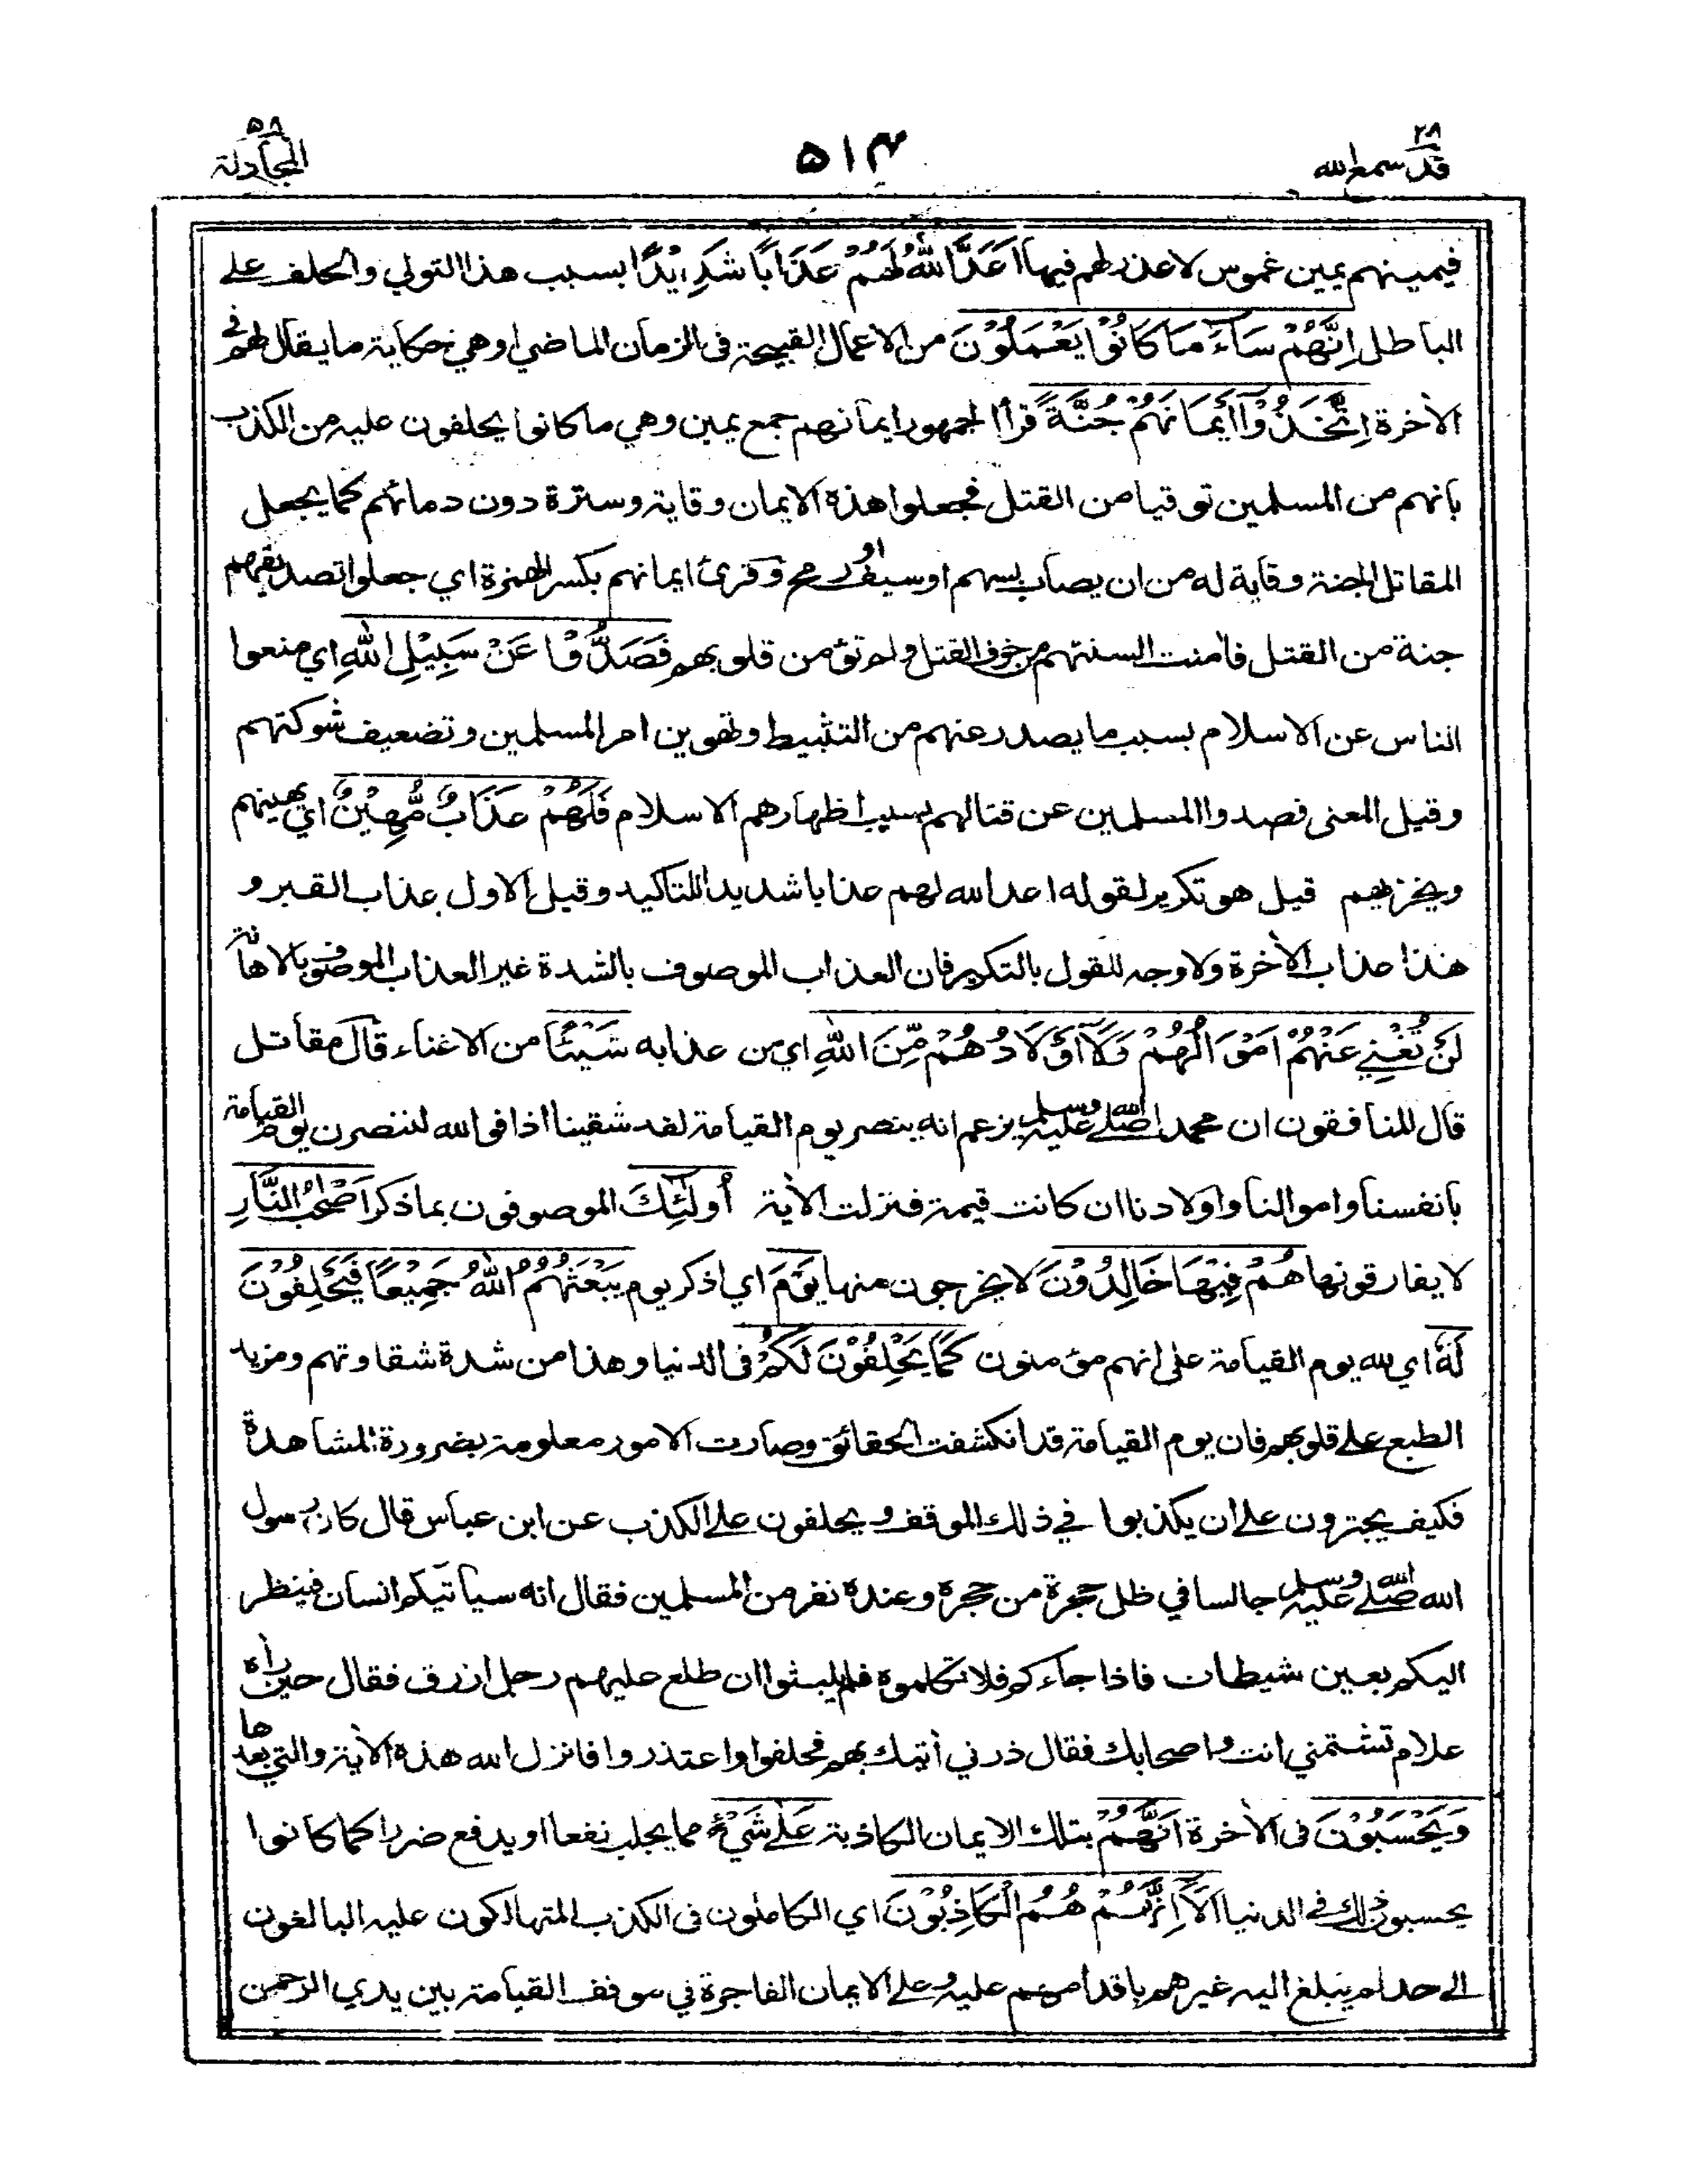 قد سمع الله ٢٨
٥١٤
المجادلة ٥٨
فيمينهم يمين غموس لا عذر لهم فيها اَعَدَّ اللّٰهُ لَهُمْ عَذَابًا شَدِيْدًا بسبب هذا التولي والحلف على
الباطل اِنَّهُمْ سَآءَ مَا كَانُوْا يَعْمَلُوْنَ من الاعمال القبيحة فى الزمان الماضي او هي حكاية ما يقال لهم في
الاٰخرة اِتَّخَذُوْۤا اَيْمَانَهُمْ جُنَّةً قرأ الجمهور ايمانهم جمع يمين وهي ما كانوا يحلفون عليه من الكذب
بانهم من المسلمين توقيا من القتل فجعلوا هذه الايمان وقاية وسترة دون دمائهم كما يجعل
المقاتل الجنة وقاية له من ان يصاب بسهم او سيف او رمح وقرئ ايمانهم بكسر الهمزة اي جعلوا تصديقهم
جنة من القتل فاٰمنت السنتهم من خوف القتل ولم تؤمن قلوبهم فَصَدُّوْا عَنْ سَبِيْلِ اللّٰهِ اي منعوا
الناس عن الاسلام بسبب ما يصدر عنهم من التثبيط وتهوين امر المسلمين وتضعيف شوكتهم
وقيل المعنى فصدوا المسلمين عن قتالهم بسبب اظهارهم الاسلام فَلَهُمْ عَذَابٌ مُّهِيْنٌ اي يهينهم
ويخزيهم قيل هو تكرير لقوله اعد الله لهم عذابا شديدا للتاكيد وقيل الاول عذاب القبر و
هذا عذاب الاٰخرة ولا وجه للقول بالتكرير فان العذاب الموصوف بالشدة غير العذاب الموصوف بالاهانة
لَنْ تُغْنِيَ عَنْهُمْ اَمْوَالُهُمْ وَلَاۤ اَوْلَادُهُمْ مِّنَ اللّٰهِ اي من عذابه شَيْئًا من الاغناء قال مقاتل
قال المنافقون ان محمدا صلى الله عليه وسلم يزعم انه ينصر يوم القيامة لقد شقينا اذا فوالله لننصرن يوم القيامة
بانفسنا واموالنا واولادنا ان كانت قيمة فنزلت الاٰية اُولٰٓئِكَ الموصوفون بما ذكر اَصْحٰبُ النَّارِ
لا يفارقونها هُمْ فِيْهَا خَالِدُوْنَ لا يخرجون منها يَوْمَ اي اذكر يوم يَبْعَثُهُمُ اللّٰهُ جَمِيْعًا فَيَحْلِفُوْنَ
لَهٗ اي لله يوم القيامة على انهم مؤمنون كَمَا يَحْلِفُوْنَ لَكُمْ فى الدنيا وهذا من شدة شقاوتهم ومزيد
الطبع على قلوبهم فان يوم القيامة قد انكشفت الحقائق وصارت الامور معلومة بضرورة المشاهدة
فكيف يجترون على ان يكذبوا في ذلك الموقف و يحلفون على الكذب عن ابن عباس قال كان رسول
الله صلى الله عليه وسلم جالسا في ظل حجرة من حجره وعنده نفر من المسلمين فقال انه سيأتيكم انسان فينظر
اليكم بعين شيطان فاذا جاءكم فلا تكلموه فلم يلبثوا ان طلع عليهم رجل ازرق فقال حين راٰه
علام تشتمني انت واصحابك فقال ذرني اٰتيك بهم فحلفوا واعتذروا فانزل الله هذه الاٰية والتي بعدها
وَيَحْسَبُوْنَ فى الاٰخرة اَنَّهُمْ بتلك الايمان الكاذبة عَلٰى شَيْءٍ مما يجلب نفعا او يدفع ضررا كما كانوا
يحسبون ذلك في الدنيا اَلَاۤ اِنَّهُمْ هُمُ الْكَاذِبُوْنَ اي الكاملون فى الكذب المتهالكون عليه البالغون
الى حد لم يبلغ اليه غيرهم باقدامهم عليه وعلى الايمان الفاجرة في موقف القيامة بين يدي الرحمن